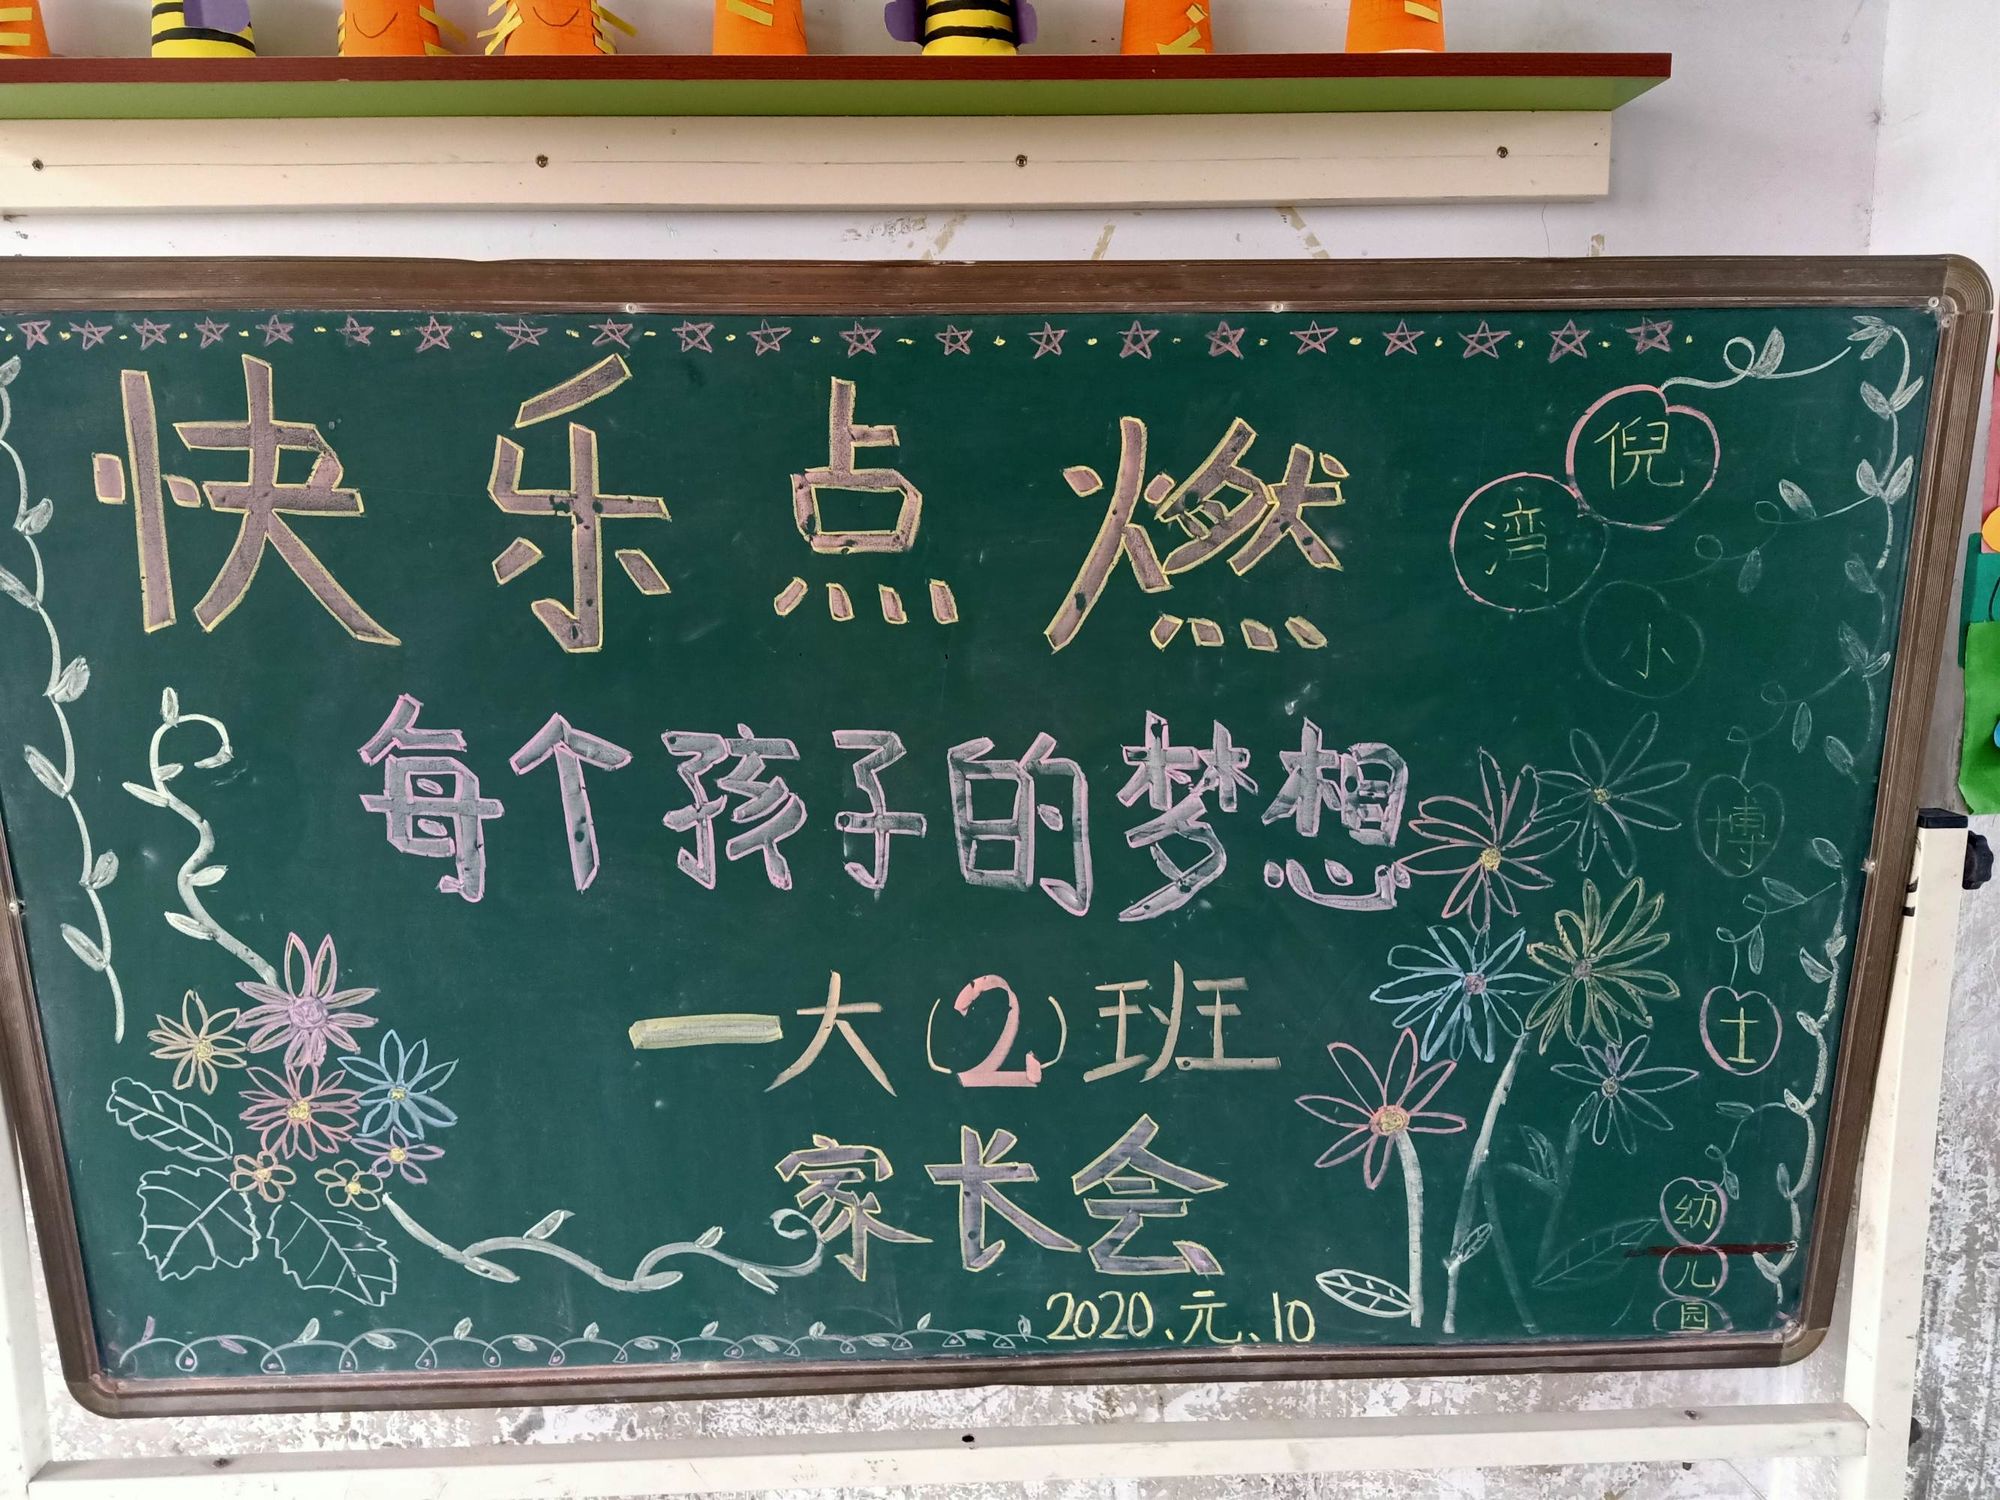 快乐点燃
每个孩子的梦想
一大(2)班
家长会
2020、元、10
倪湾小博士幼儿园